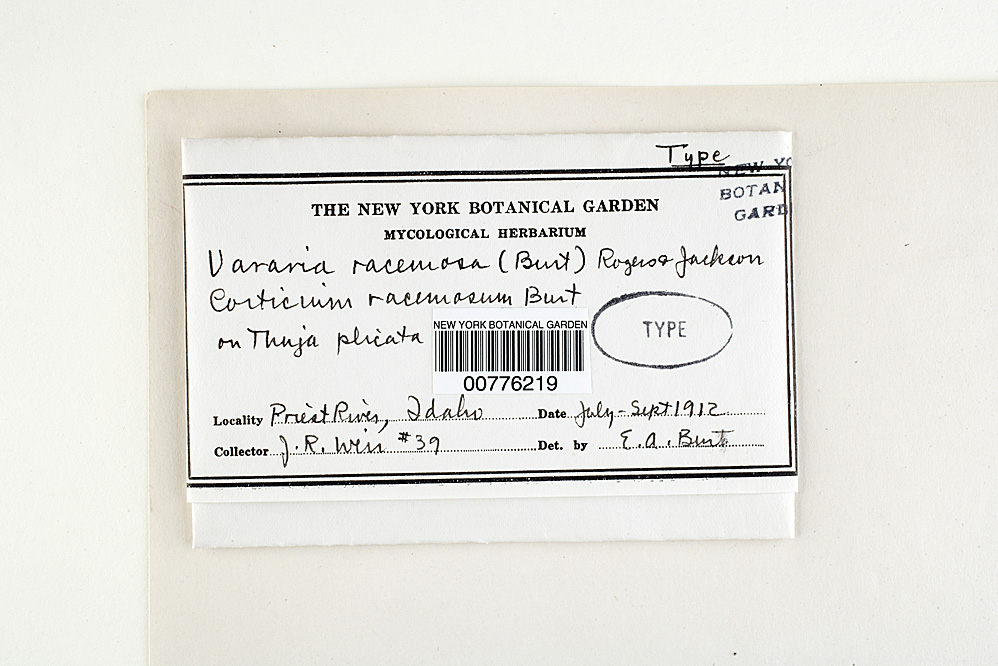 Type
NEW YO
BOTAN
GARD
THE NEW YORK BOTANICAL GARDEN
MYCOLOGICAL HERBARIUM
Vararia racemosa (Burt) Rogers & Jackson
Corticium racemosum Burt
on Thuja plicata
TYPE
NEW YORK BOTANICAL GARDEN
00776219
Locality Priest River, Idaho Date July - Sept 1912
Collector J. R. Weir #39 Det. by E. A. Burt